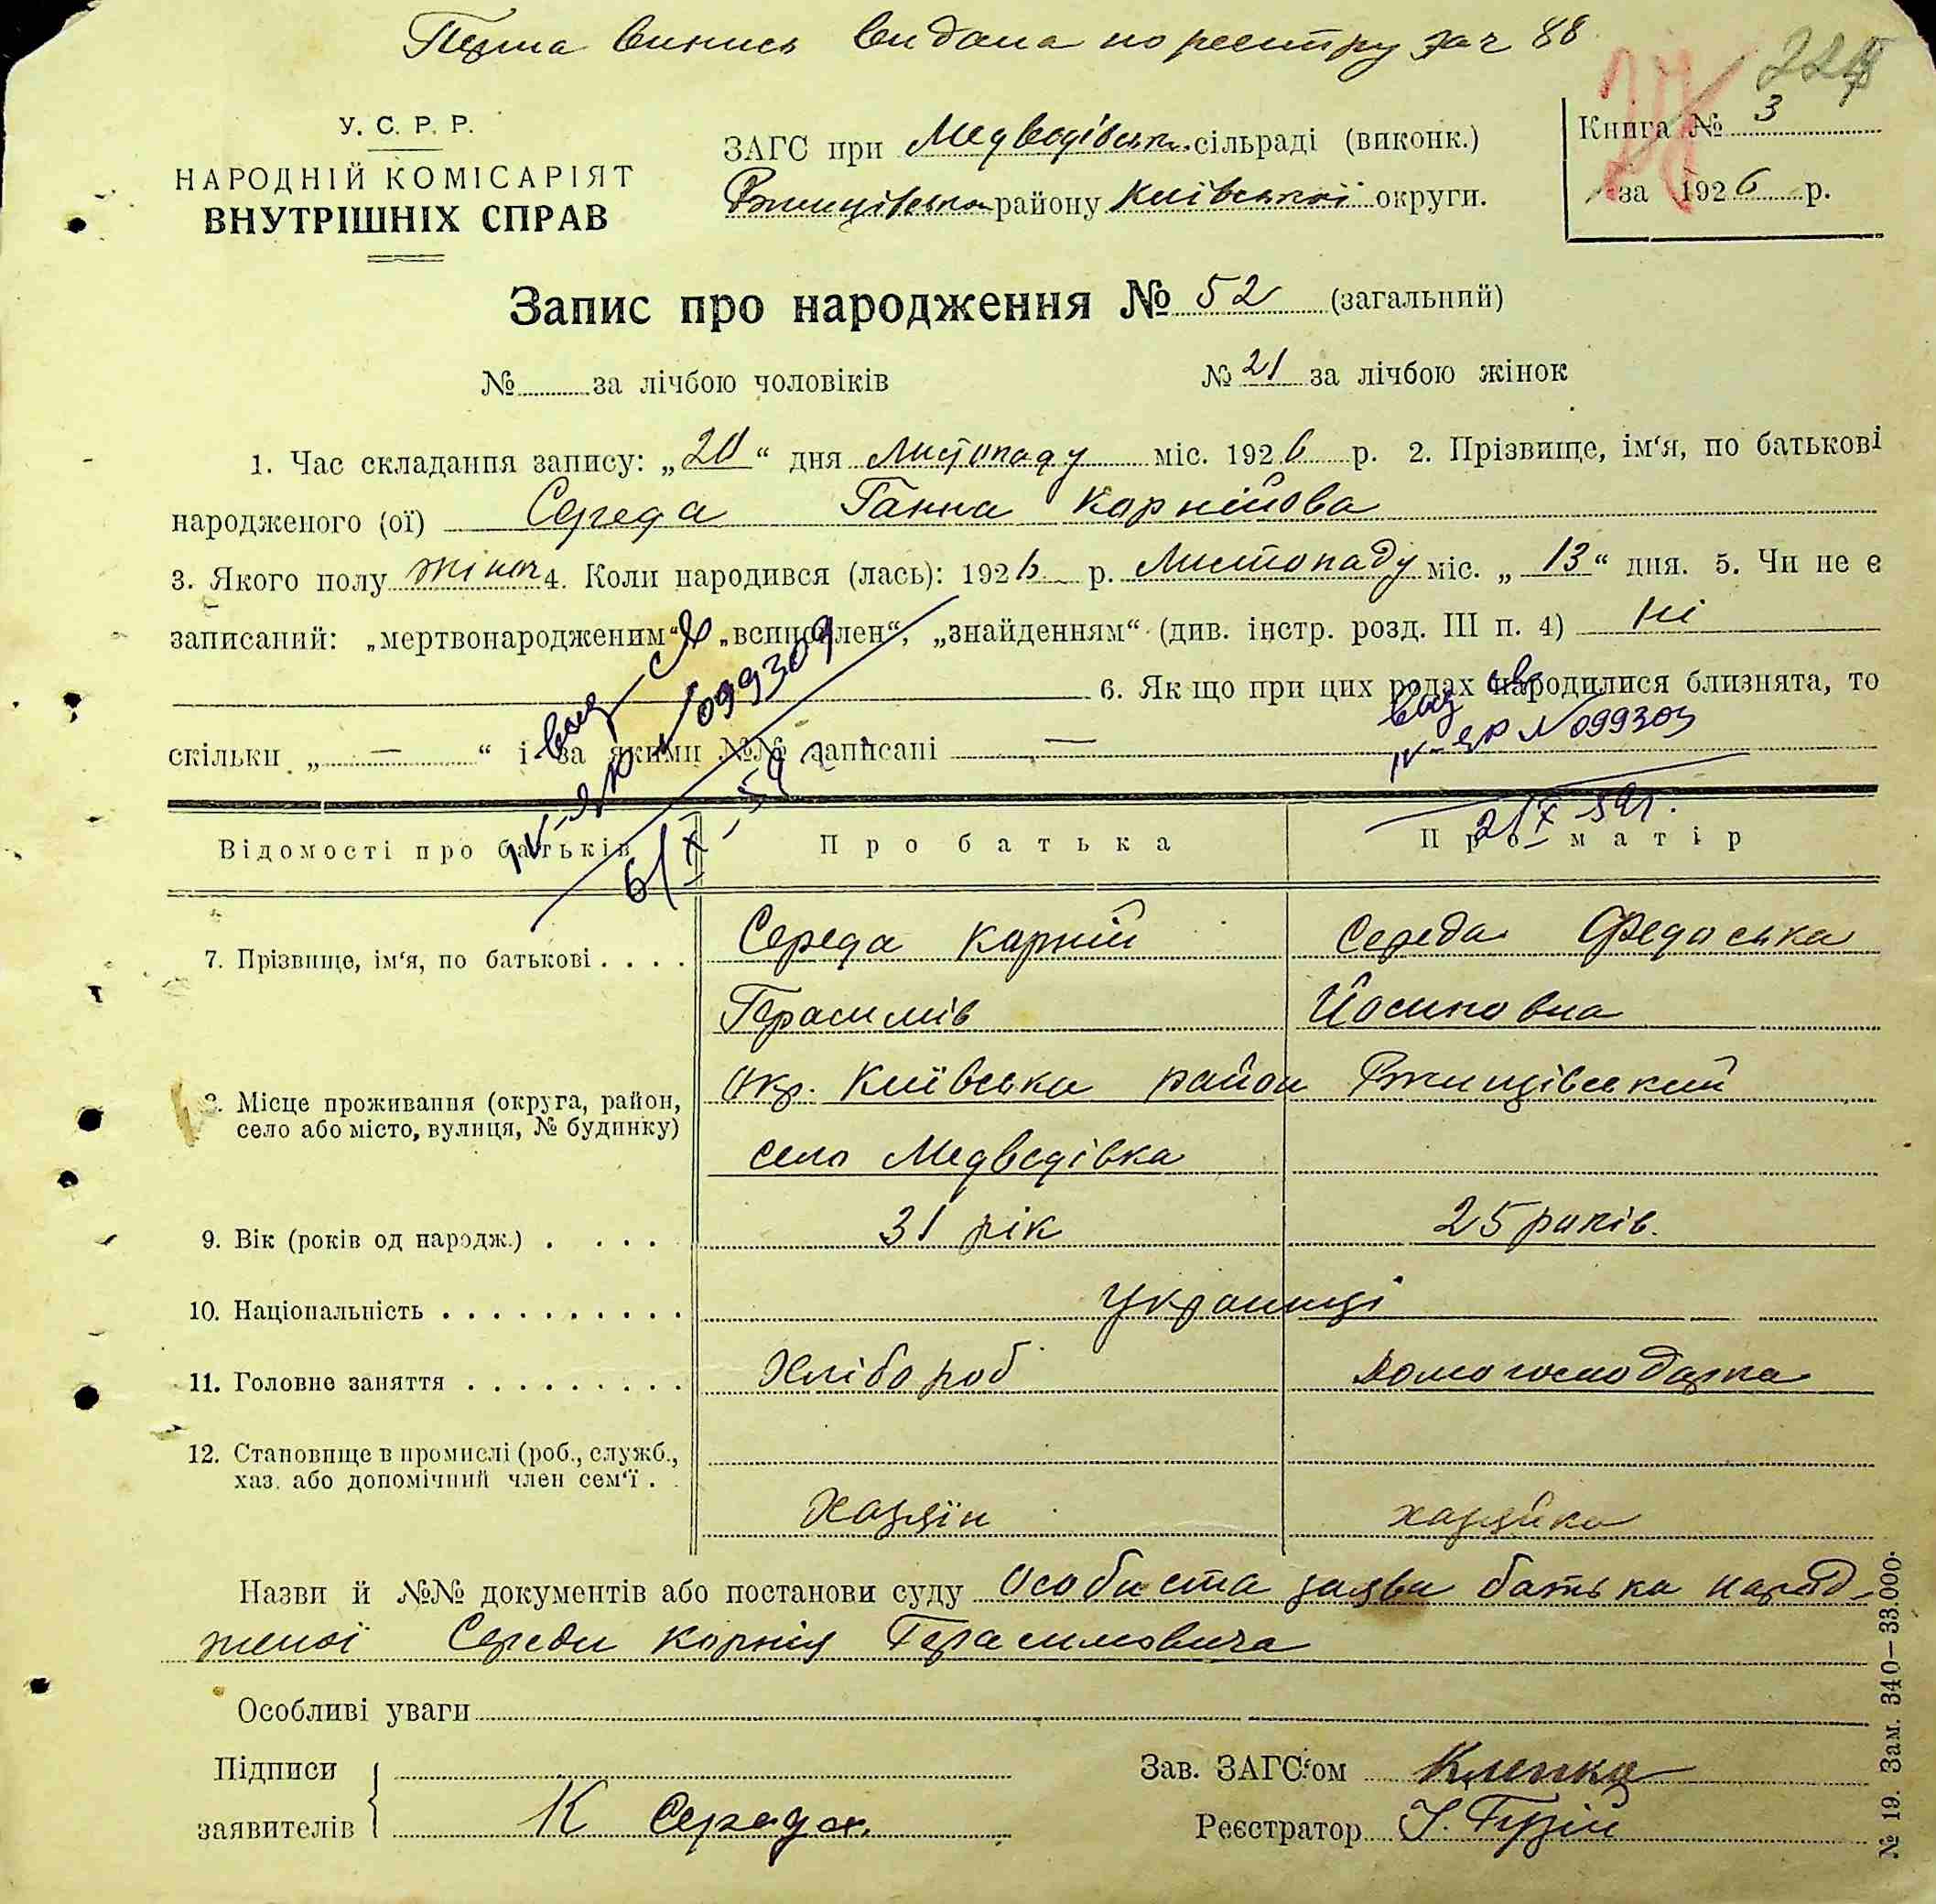 Перша випись видана по реєстру за ч 88
224
У. С. Р. Р.
НАРОДНІЙ КОМІСАРІЯТ
ВНУТРІШНІХ СПРАВ
ЗАГС при Медведівськ. сільраді (виконк.)
Ржищівськ району Київської округи.
Книга № 3
за 1926 р.
Запис про народження № 52 (загальний)
№ за лічбою чоловіків
№ 21 за лічбою жінок
1. Час складання запису: „20“ дня Листопаду міс. 1926 р. 2. Прізвище, ім‘я, по батькові
народженого (ої) Середа Ганна Корнійова
3. Якого полу жіноч 4. Коли народився (лась): 1926 р. Листопаду міс. „13“ дня. 5. Чи не є
записаний: „мертвонародженим“ „всиновлен“, „знайденням“ (див. інстр. розд. III п. 4) ні
6. Як що при цих родах народилися близнята, то
скільки „—“ і за якими №№ записані —
вид. св
IV-ЯР № 099309
6/X-54
вид св
IV-ЯР № 099303
2/X-54г.
Відомості про батьків
Про батька
Про матір
7. Прізвище, ім‘я, по батькові . . . .
Середа Корній
Середа Федоська
Герасимів
Йосиповна
8. Місце проживання (округа, район,
село або місто, вулиця, № будинку)
Окр. Київська район Ржищівський
село Медведівка
9. Вік (років од народж.) . . . . .
31 рік
25 років.
10. Національність . . . . . . . . . .
Українці
11. Головне заняття . . . . . . . . .
Хлібороб
Домогосподарка
12. Становище в промислі (роб., служб.,
хаз. або допомічний член сем‘ї . .
Хазяїн
хазяйка
Назви й №№ документів або постанови суду Особиста заява батька народ-
женої Середи Корнія Герасимовича
Особливі уваги
Підписи
заявителів
К Середа.
Зав. ЗАГС‘ом
Реєстратор
№ 19. Зам. 340—33.000.